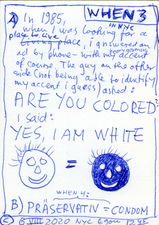 WHEN 3
A) In 1985, in NYC
when I was looking for a
place to live
living place, I answered an
ad by phone - with my accent
of course. The guy on the other
side (not being able to identify
my accent I guess) asked:
ARE YOU COLORED
I said:
YES, I AM WHITE
=
WHEN 4:
B) PRÄSERVATIV = CONDOM
© 8 VIII 2020 NYC